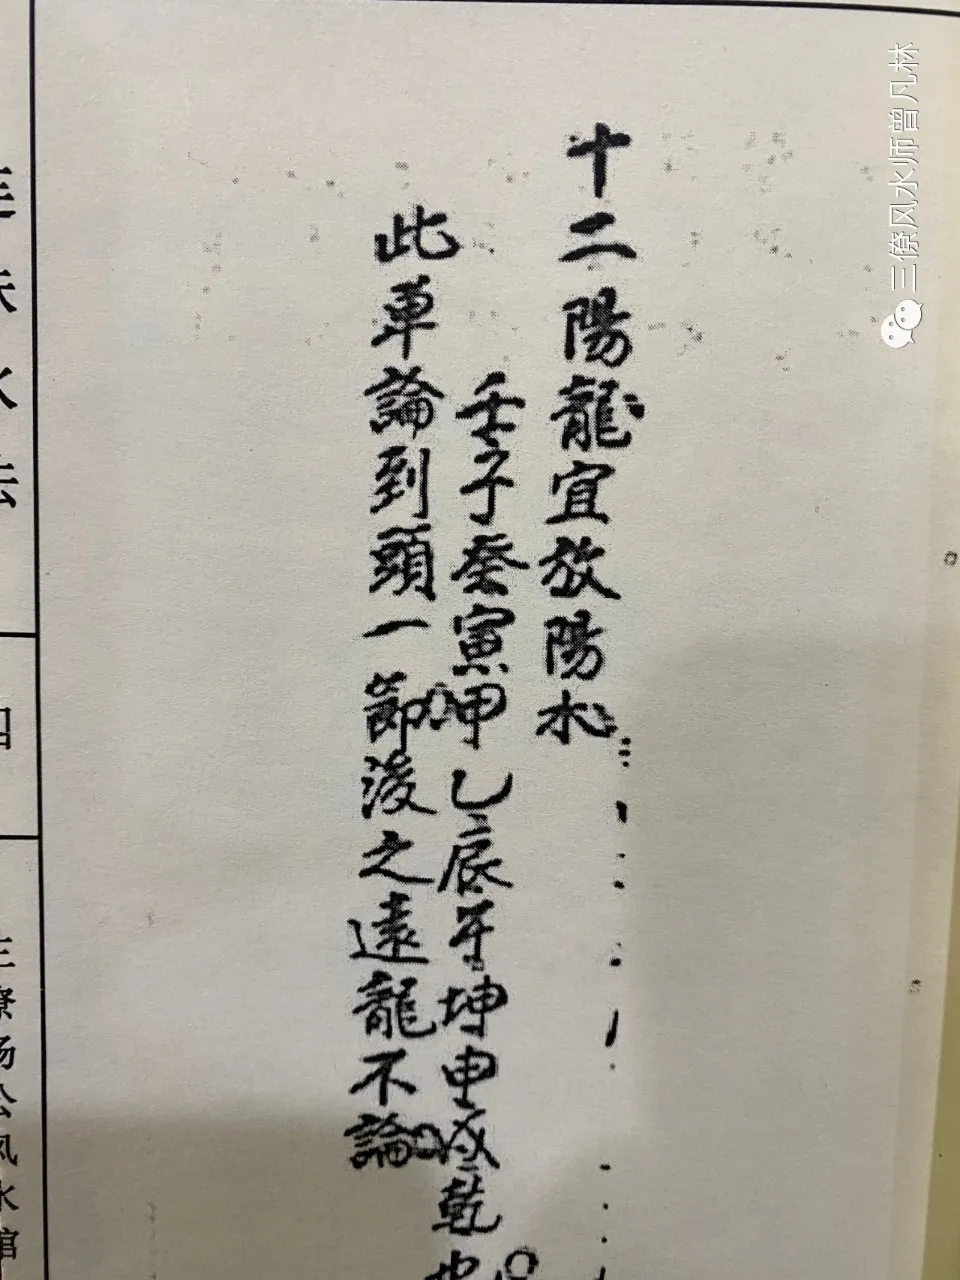 十二陽龍宜放陽水
壬子癸寅甲乙辰午坤申戌乾也
此單論到頭一節後之遠龍不論
四
三僚杨公风水馆
三僚风水师曾凡林